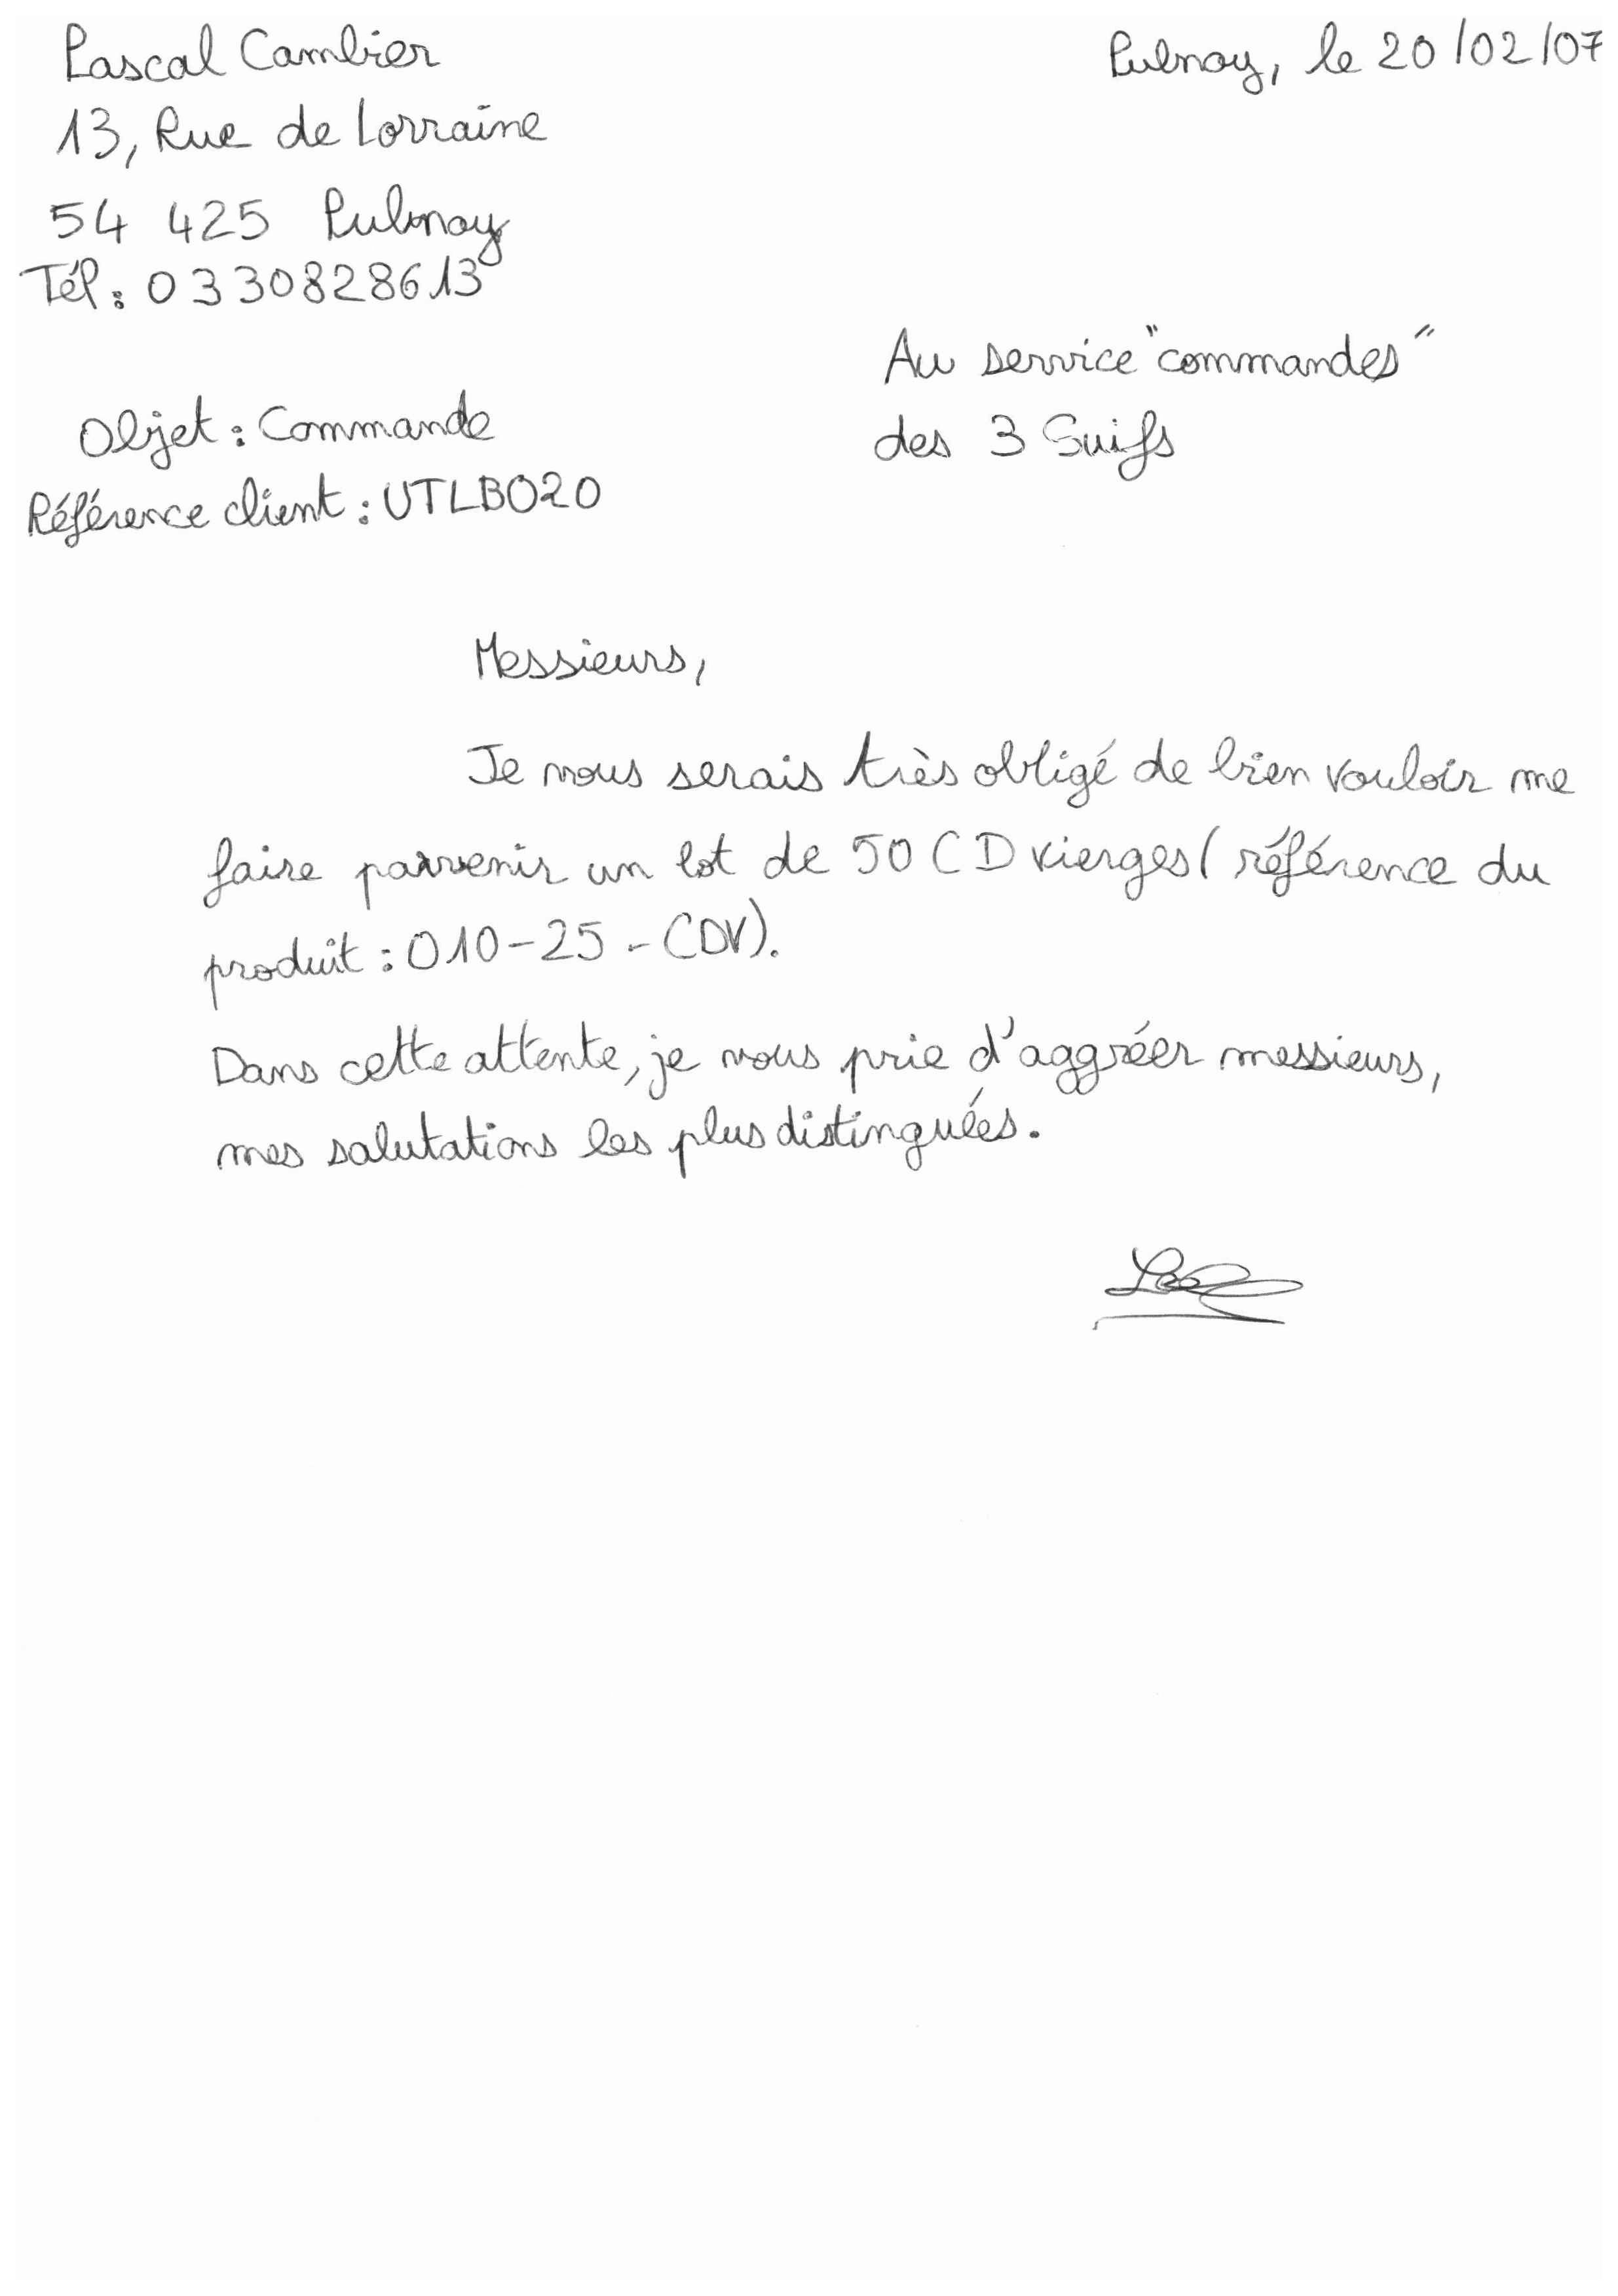 Pascal Cambier
Pulnoy, le 20/02/07
13, Rue de Lorraine
54 425 Pulnoy
Tél : 0330828613
Au service "commandes"
des 3 Suifs
Objet : Commande
Référence client : UTLBO20
Messieurs,
Je vous serais très obligé de bien vouloir me
faire parvenir un lot de 50 CD vierges (référence du
produit : 010-25-CDV).
Dans cette attente, je vous prie d'aggréer messieurs,
mes salutations les plus distinguées.